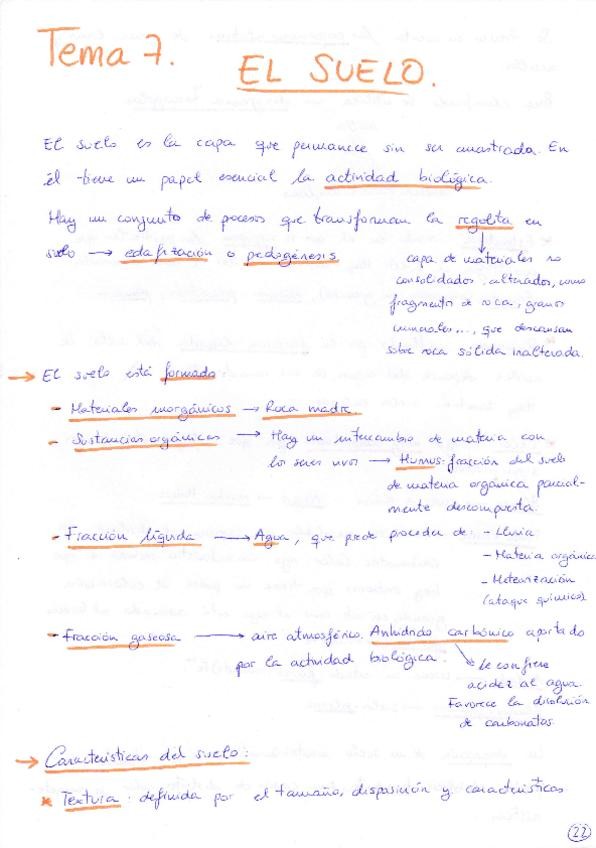 Tema 7.
EL SUELO.
El suelo es la capa que permanece sin ser arrastrada. En
él tiene un papel esencial la actividad biológica.
Hay un conjunto de procesos que transforman la regolita en
suelo → edafización o pedogénesis
capa de materiales no
consolidados, alterados, como
fragmentos de roca, granos
minerales..., que descansan
sobre roca sólida inalterada.
→ El suelo está formado:
- Materiales inorgánicos → Roca madre
- Sustancias orgánicas → Hay un intercambio de materia con
los seres vivos → Humus: fracción del suelo
de materia orgánica parcial-
mente descompuesta.
- Fracción líquida → Agua, que puede proceder de: - Lluvia
- Materia orgánica
- Meteorización
(ataque químico)
- Fracción gaseosa → aire atmosférico. Anhídrido carbónico aportado
por la actividad biológica.
le confiere
acidez al agua.
Favorece la disolución
de carbonatos.
→ Características del suelo:
* Textura: definida por el tamaño, disposición y características
22